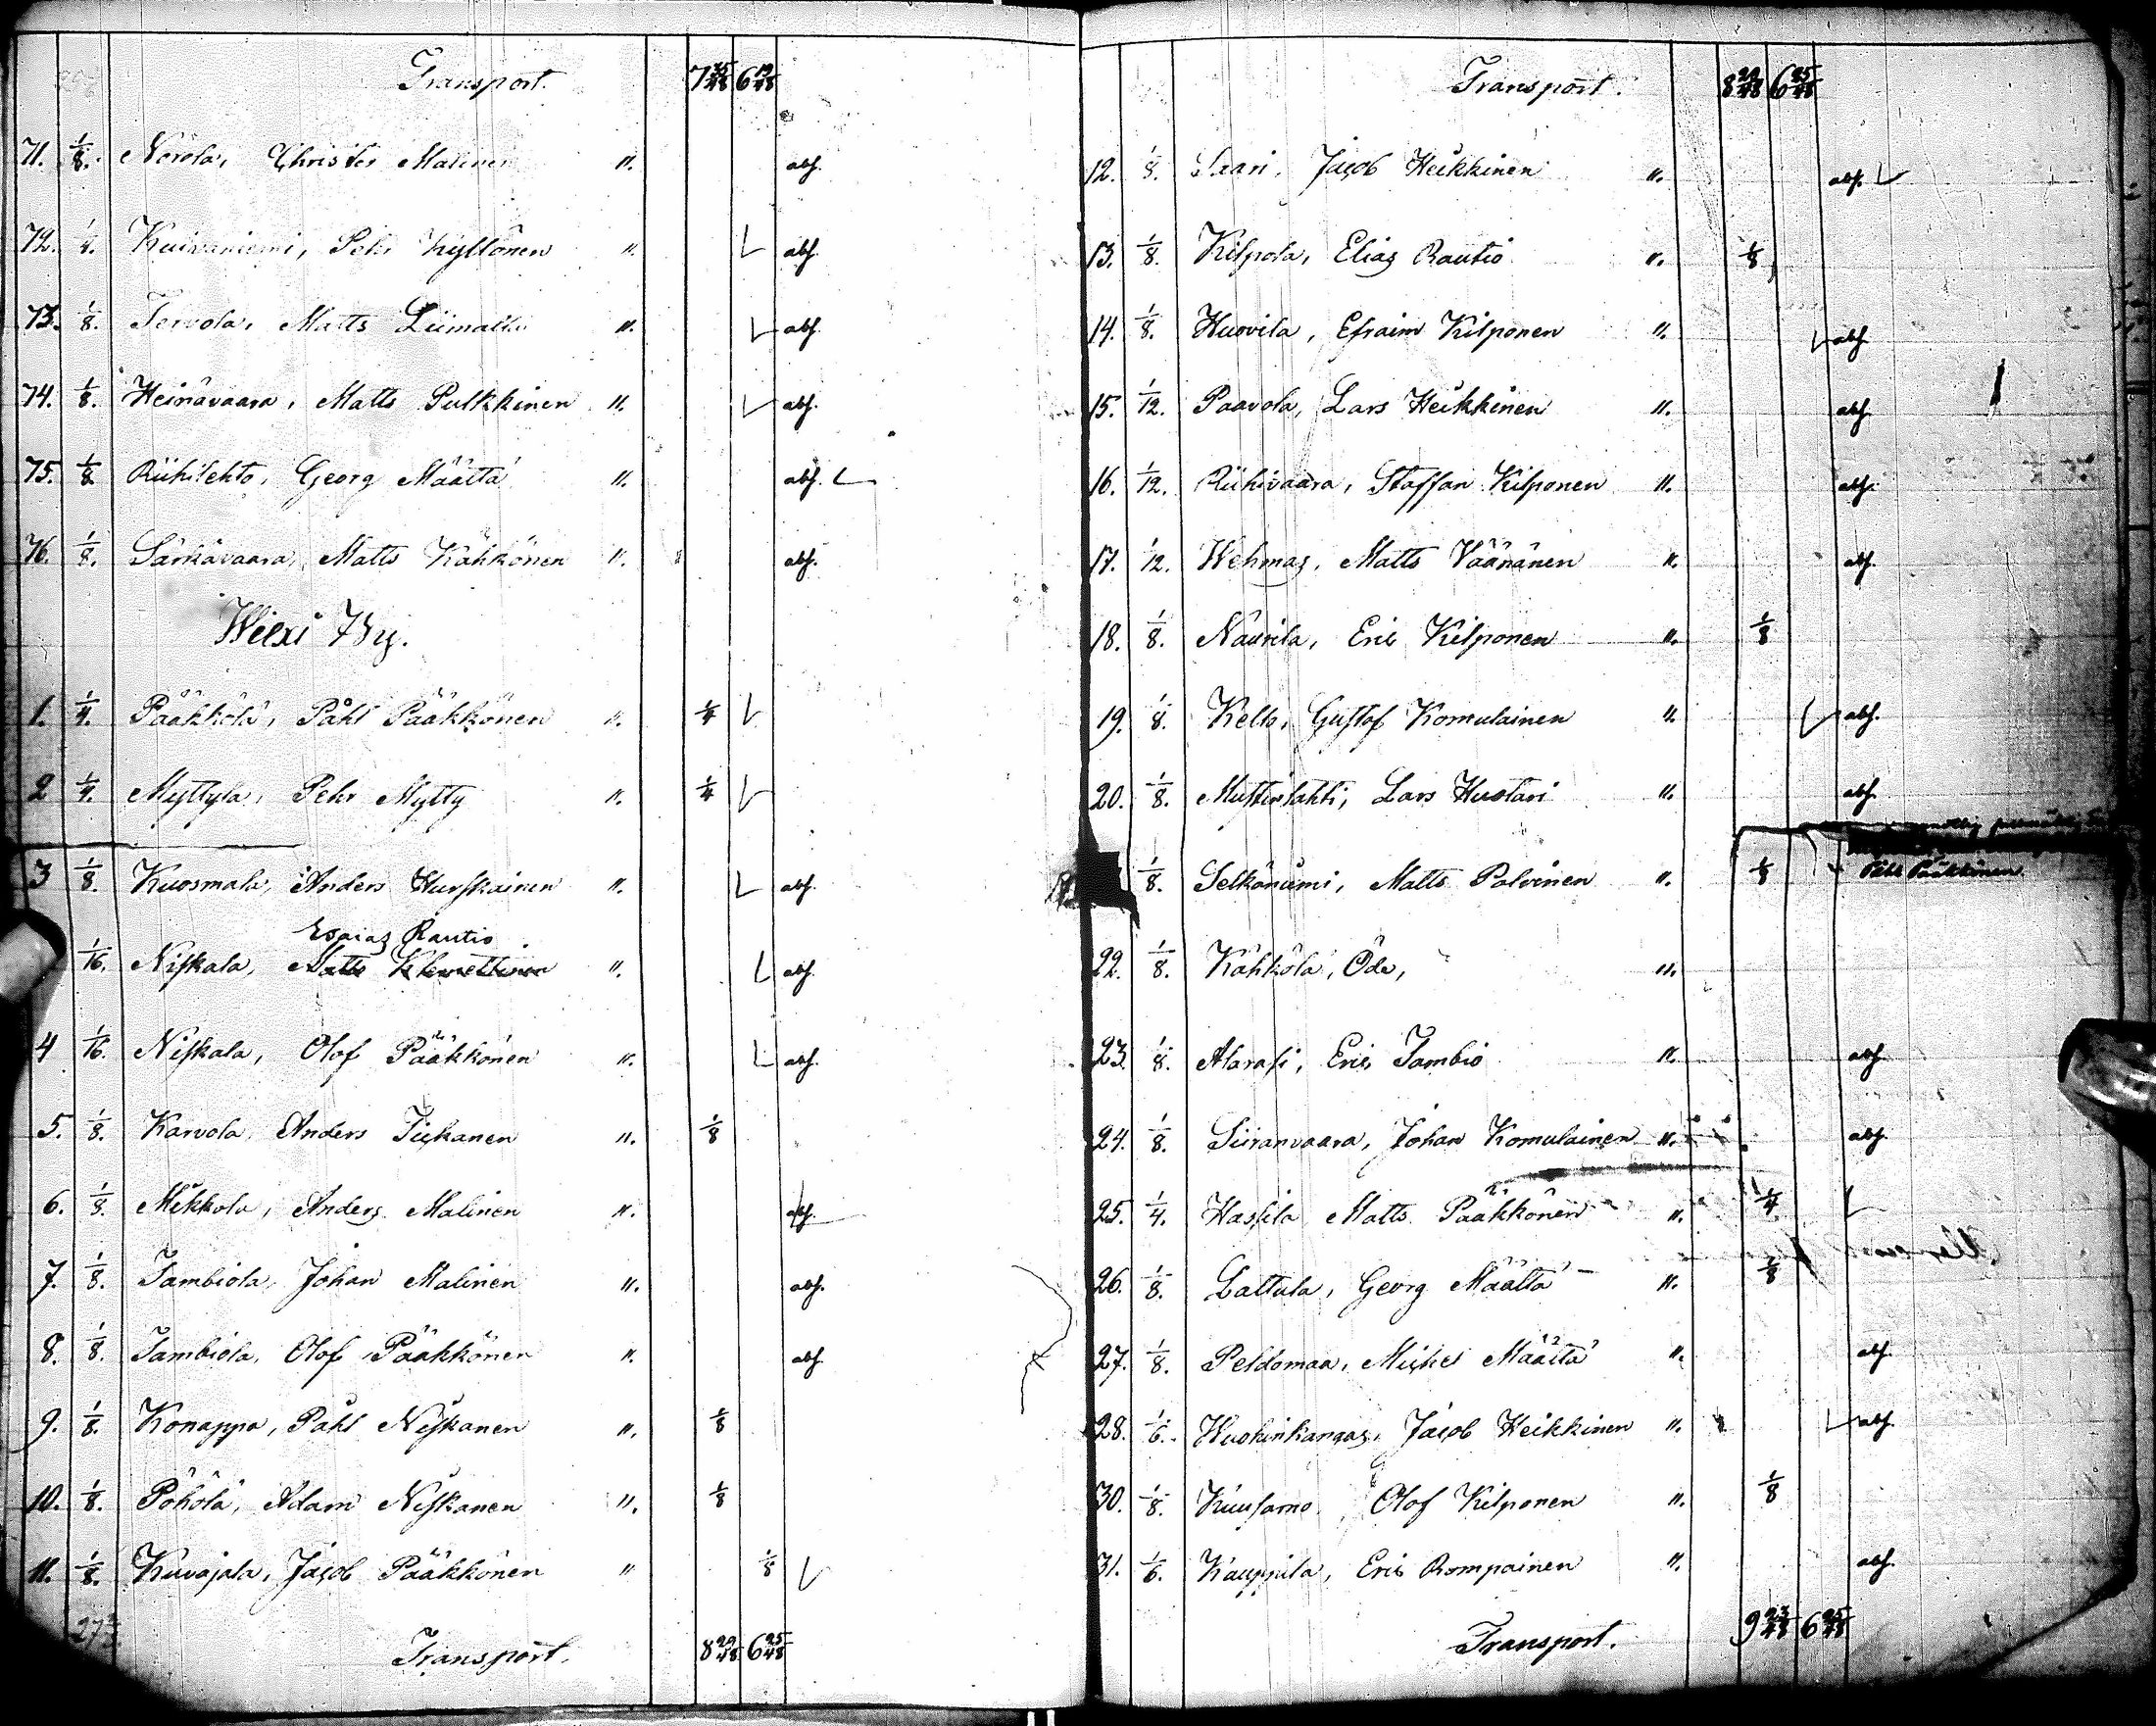 Transport. 7 35/48 6 19/48
71. 1/8. Nörölä, Christer Malinen ". abs.
72. 1/4. Kuivaniemi, Pehr Kyllönen ". abs.
73. 1/8. Tervola, Matts Liimatta ". abs.
74. 1/8. Heinävaara, Matts Pulkkinen ". abs.
75. 1/8 Riihilehto, Georg Määttä ". abs.
76. 1/8. Särkävaara, Matts Kähkönen ". abs.
Wiexi By.
1. 1/4. Pääkkölä, Påhl Pääkkönen ". 1/4
2 1/4. Myttylä, Pehr Mytty ". 1/4
3 1/8. Kuosmala, Anders Hurskainen ". abs.
Esaias Rautio
1/16. Niskala, Matts Klemettinen ". abs.
4 1/16. Niskala, Olof Pääkkönen ". abs.
5. 1/8. Karvola, Anders Tickanen ". 1/8
6. 1/8. Mikkola, Anders Malinen ". abs.
7. 1/8. Tambiola, Johan Malinen ". abs.
8. 1/8. Tambiola, Olof Pääkkönen ". abs.
9. 1/8. Konappa, Påhl Niskanen ". 1/8
10. 1/8. Pöhölä, Adam Niskanen ". 1/8
11. 1/8. Kuvajala, Jacob Pääkkönen " 1/8
273
Transport. 8 29/48 6 25/48
Transport. 8 29/48 6 25/48
12. 1/8. Saari, Jacob Heikkinen ". abs.
13. 1/8. Kilpola, Elias Rautio ". 1/8
14. 1/8. Huovila, Efraim Kilponen ". abs.
15. 1/12. Paavola, Lars Heikkinen ". abs.
16. 1/12. Riihivaara, Staffan Kilponen ". abs.
17. 1/12. Wehmas, Matts Väänänen ". abs.
18. 1/8. Naurila, Eric Kilponen ". 1/8
19. 1/8. Kello, Gustof Komulainen ". abs.
20. 1/8. Mustinlahti, Lars Huotari ". abs.
1/8. Selkäniemi, Matts Polvinen ". 1/8 Påhl Pääkkönen
22. 1/8. Kähkölä, Öde, ".
23. 1/8. Alarasi, Eric Tambio ". abs.
24. 1/8. Siiranvaara, Johan Komulainen ". abs.
25. 1/4. Hassila Matts Pääkkönen ". 1/4
26. 1/8. Lattula, Georg Määttä ". 1/8
27. 1/8. Peldomaa, Michel Määttä ". abs.
28. 1/6. Huohinkangas, Jacob Heikkinen ". abs.
30. 1/8. Kuusamo, Olof Kilponen ". 1/8
31. 1/6. Kauppila, Eric Rompainen ". abs.
Transport. 9 23/48 6 25/48